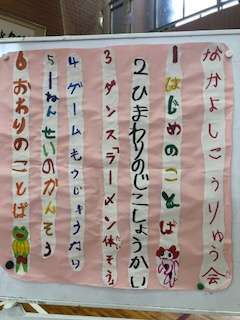 なかよしこうりゅう会
1 はじめのことば
2 ひまわりのじこしょうかい
3 ダンス「ラーメン体そう」
4 ゲームもうじゅうがり
5 一ねんせいのかんそう
6 おわりのことば